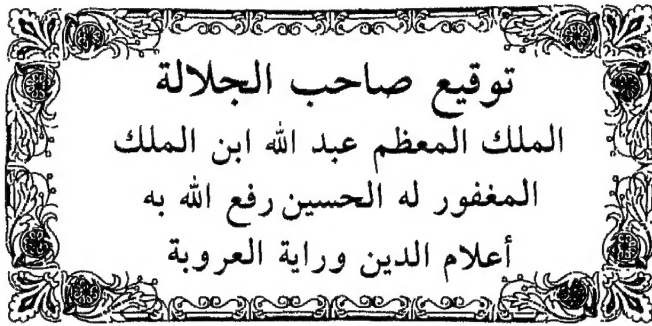 توقيع صاحب الجلالة
الملك المعظم عبد الله ابن الملك
المغفور له الحسين رفع الله به
أعلام الدين وراية العروبة